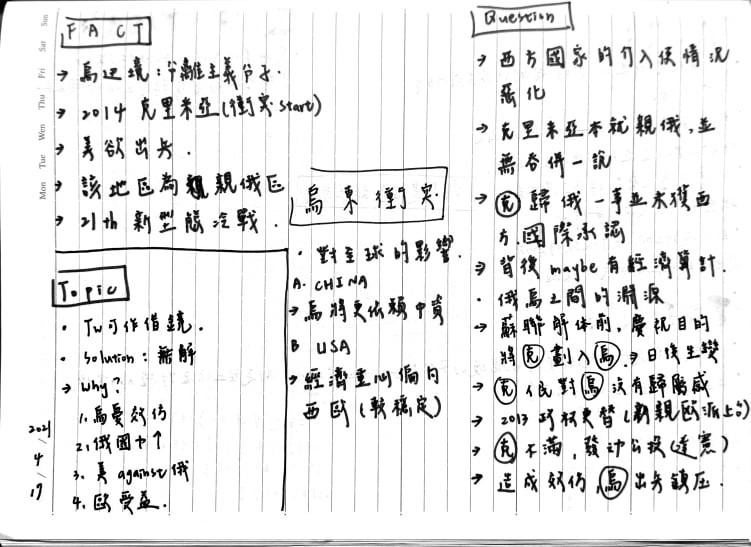 Mon Tue Wed Thu Fri Sat Sun
FACT
→ 烏邊境:分離主義分子.
→ 2014 克里米亞(衝突start)
→ 美欲出兵.
→ 該地區為親俄區
→ 21th 新型態冷戰.
Topic
• TW可作借鏡.
• Solution: 無解
→ Why?
1. 烏憂效仿
2. 俄國力↑
3. 美against俄
4. 歐受益.
2021/4/19
烏東衝突
• 對全球的影響.
A. CHINA
→ 烏將更依賴中資
B USA
→ 經濟重心偏向
西歐(較穩定)
Question
→ 西方國家的介入使情況
惡化
→ 克里米亞本就親俄,並
無吞併一說
→ 克歸俄一事並未獲西
方,國際承認
→ 背後maybe有經濟算計.
• 俄烏之間的淵源
→ 蘇聯解体前,慶祝目的
將克劃入烏→日後生變
→ 克人民對烏沒有歸屬感
→ 2013 政權更替(新親歐派上台)
→ 克不滿,發動公投(違憲)
→ 造成效仿,烏出兵鎮压.